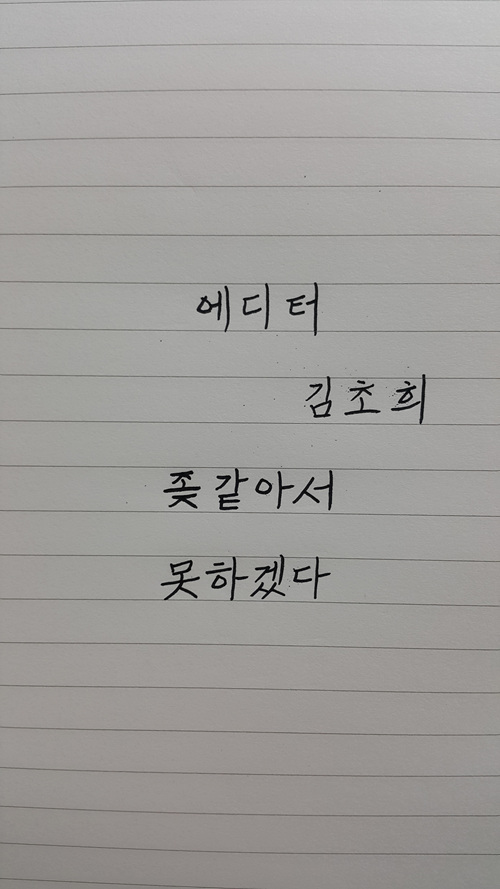 에디터
김초희
좆같아서
못하겠다